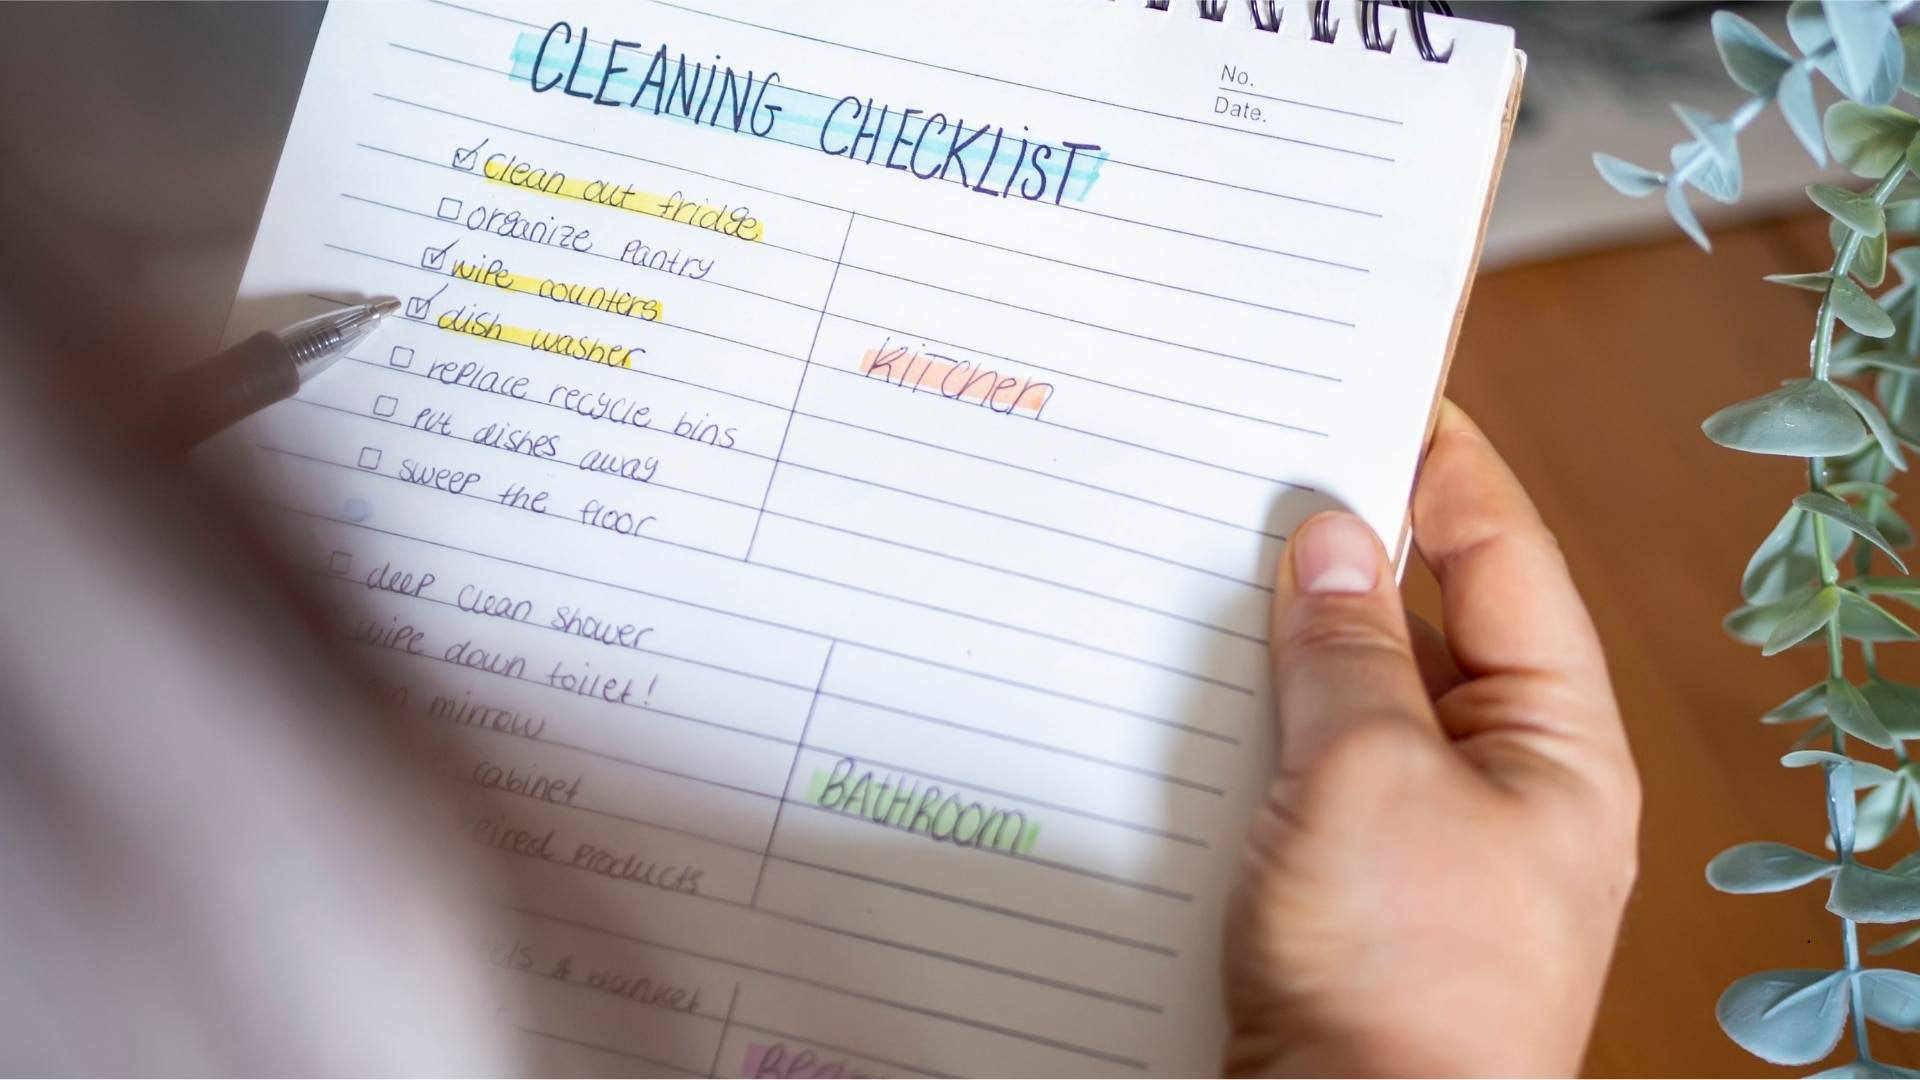 No.
Date.
CLEANING CHECKLIST
Clean out fridge
organize pantry
wipe counters
dish washer
replace recycle bins
put dishes away
sweep the floor
KitChen
deep clean shower
wipe down toilet!
mirrow
cabinet
products
BAtHRoom
& blanket